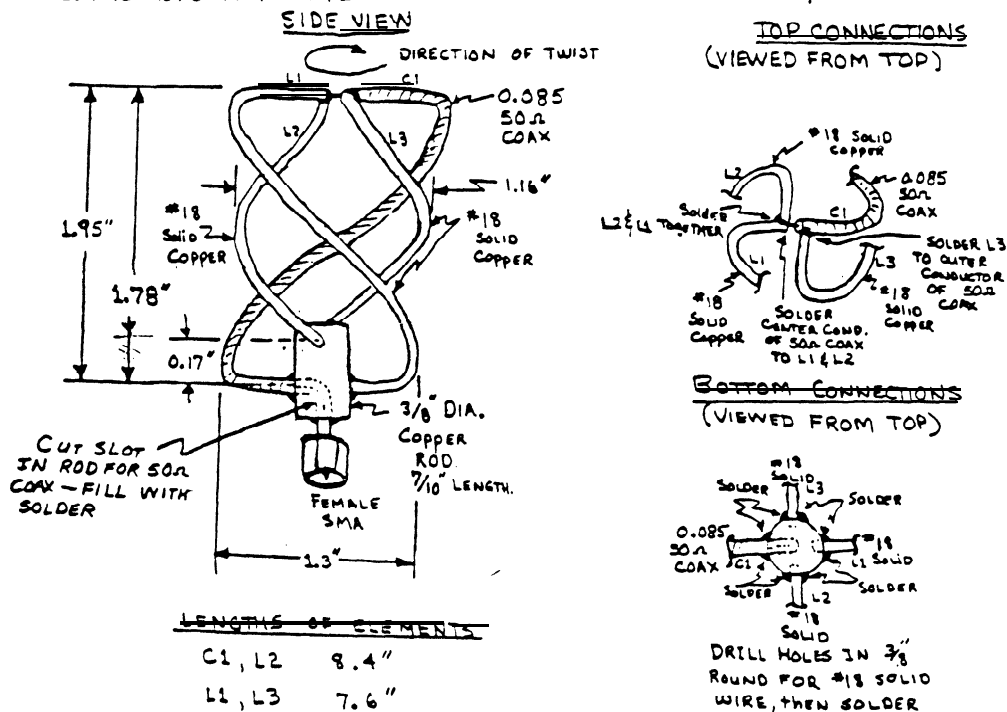 SIDE VIEW
DIRECTION OF TWIST
L1
C1
L2
L3
0.085
50Ω
COAX
1.16"
#18
Solid
COPPER
#18
SOLID
COPPER
1.95"
1.78"
0.17"
3/8" DIA.
COPPER
ROD
7/10" LENGTH.
CUT SLOT
IN ROD FOR 50Ω
COAX – FILL WITH
SOLDER
FEMALE
SMA
1.3"
LENGTHS OF ELEMENTS
C1, L2 8.4"
L1, L3 7.6"
TOP CONNECTIONS
(VIEWED FROM TOP)
#18 SOLID
COPPER
L2
0.085
50Ω
COAX
C1
SOLDER
L2 & L1 TOGETHER
L1
L3
SOLDER L3
TO OUTER
CONDUCTOR
OF 50Ω
COAX
#18
SOLID
COPPER
SOLDER
CENTER COND.
OF 50Ω COAX
TO L1 & L2
#18
SOLID
COPPER
BOTTOM CONNECTIONS
(VIEWED FROM TOP)
#18
SOLID
L3
SOLDER
SOLDER
0.085
50Ω
COAX
C1
#18
SOLID
L1
SOLDER
SOLDER
L2
#18
SOLID
DRILL HOLES IN 3/8"
ROUND FOR #18 SOLID
WIRE, THEN SOLDER